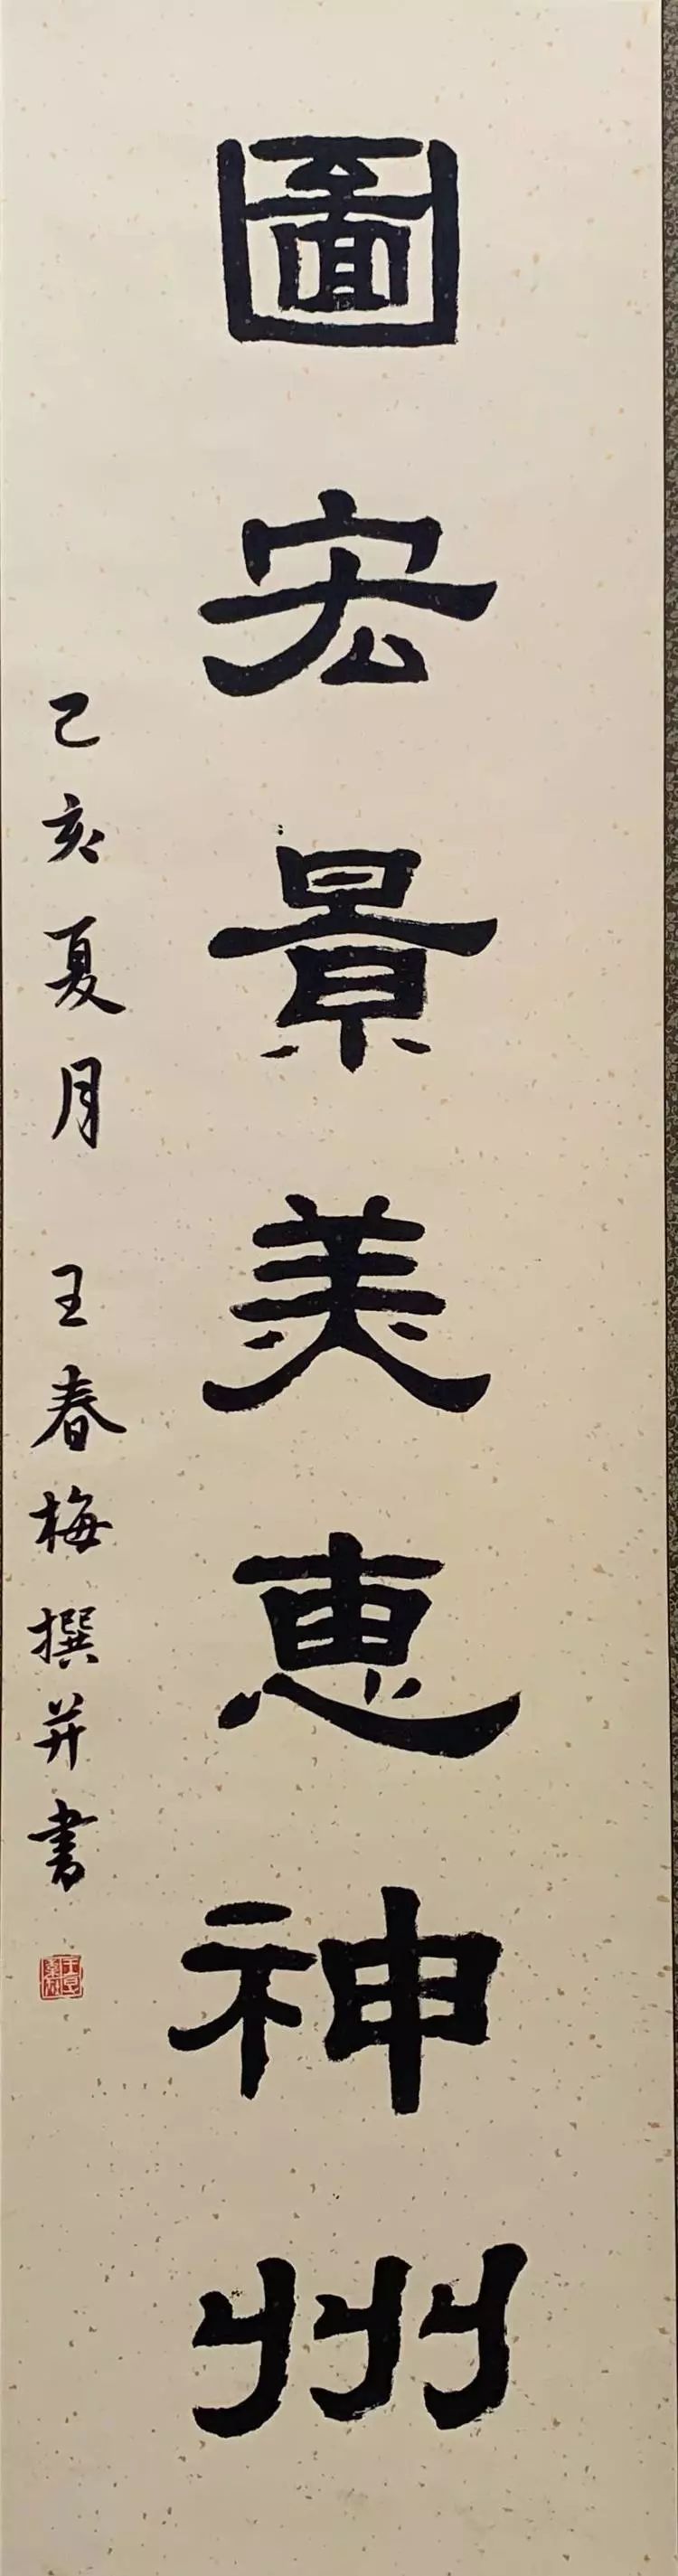 圖宏景美惠神州
己亥夏月 王春梅撰并書